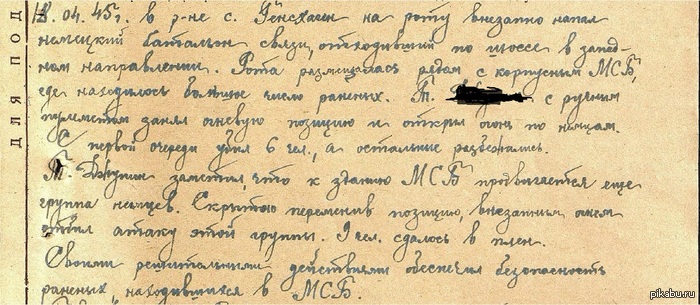 ДЛЯ ПОД
18.04.45г. в р-не с. Генсхаген на роту внезапно напал
немецкий батальон связи, отходивший по шоссе в запад-
ном направлении. Рота размещалась рядом с корпусным МСБ,
где находилось большое число раненых. Т. с ручным
пулеметом занял огневую позицию и открыл огонь по немцам.
С первой очереди убил 6 чел., а остальные разбежались.
Т. заметил, что к зданию МСБ продвигается еще
группа немцев. Скрытою переменив позицию, внезапным огнем
отбил атаку этой группы. 9 чел. сдалось в плен.
Своими решительными действиями обеспечил безопасность
раненых, находившихся в МСБ.
pikabu.ru